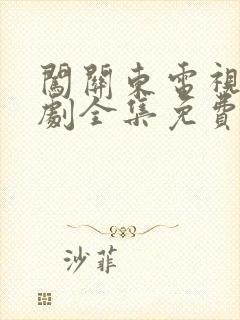 闖關東電視
劇全集免費
沙菲